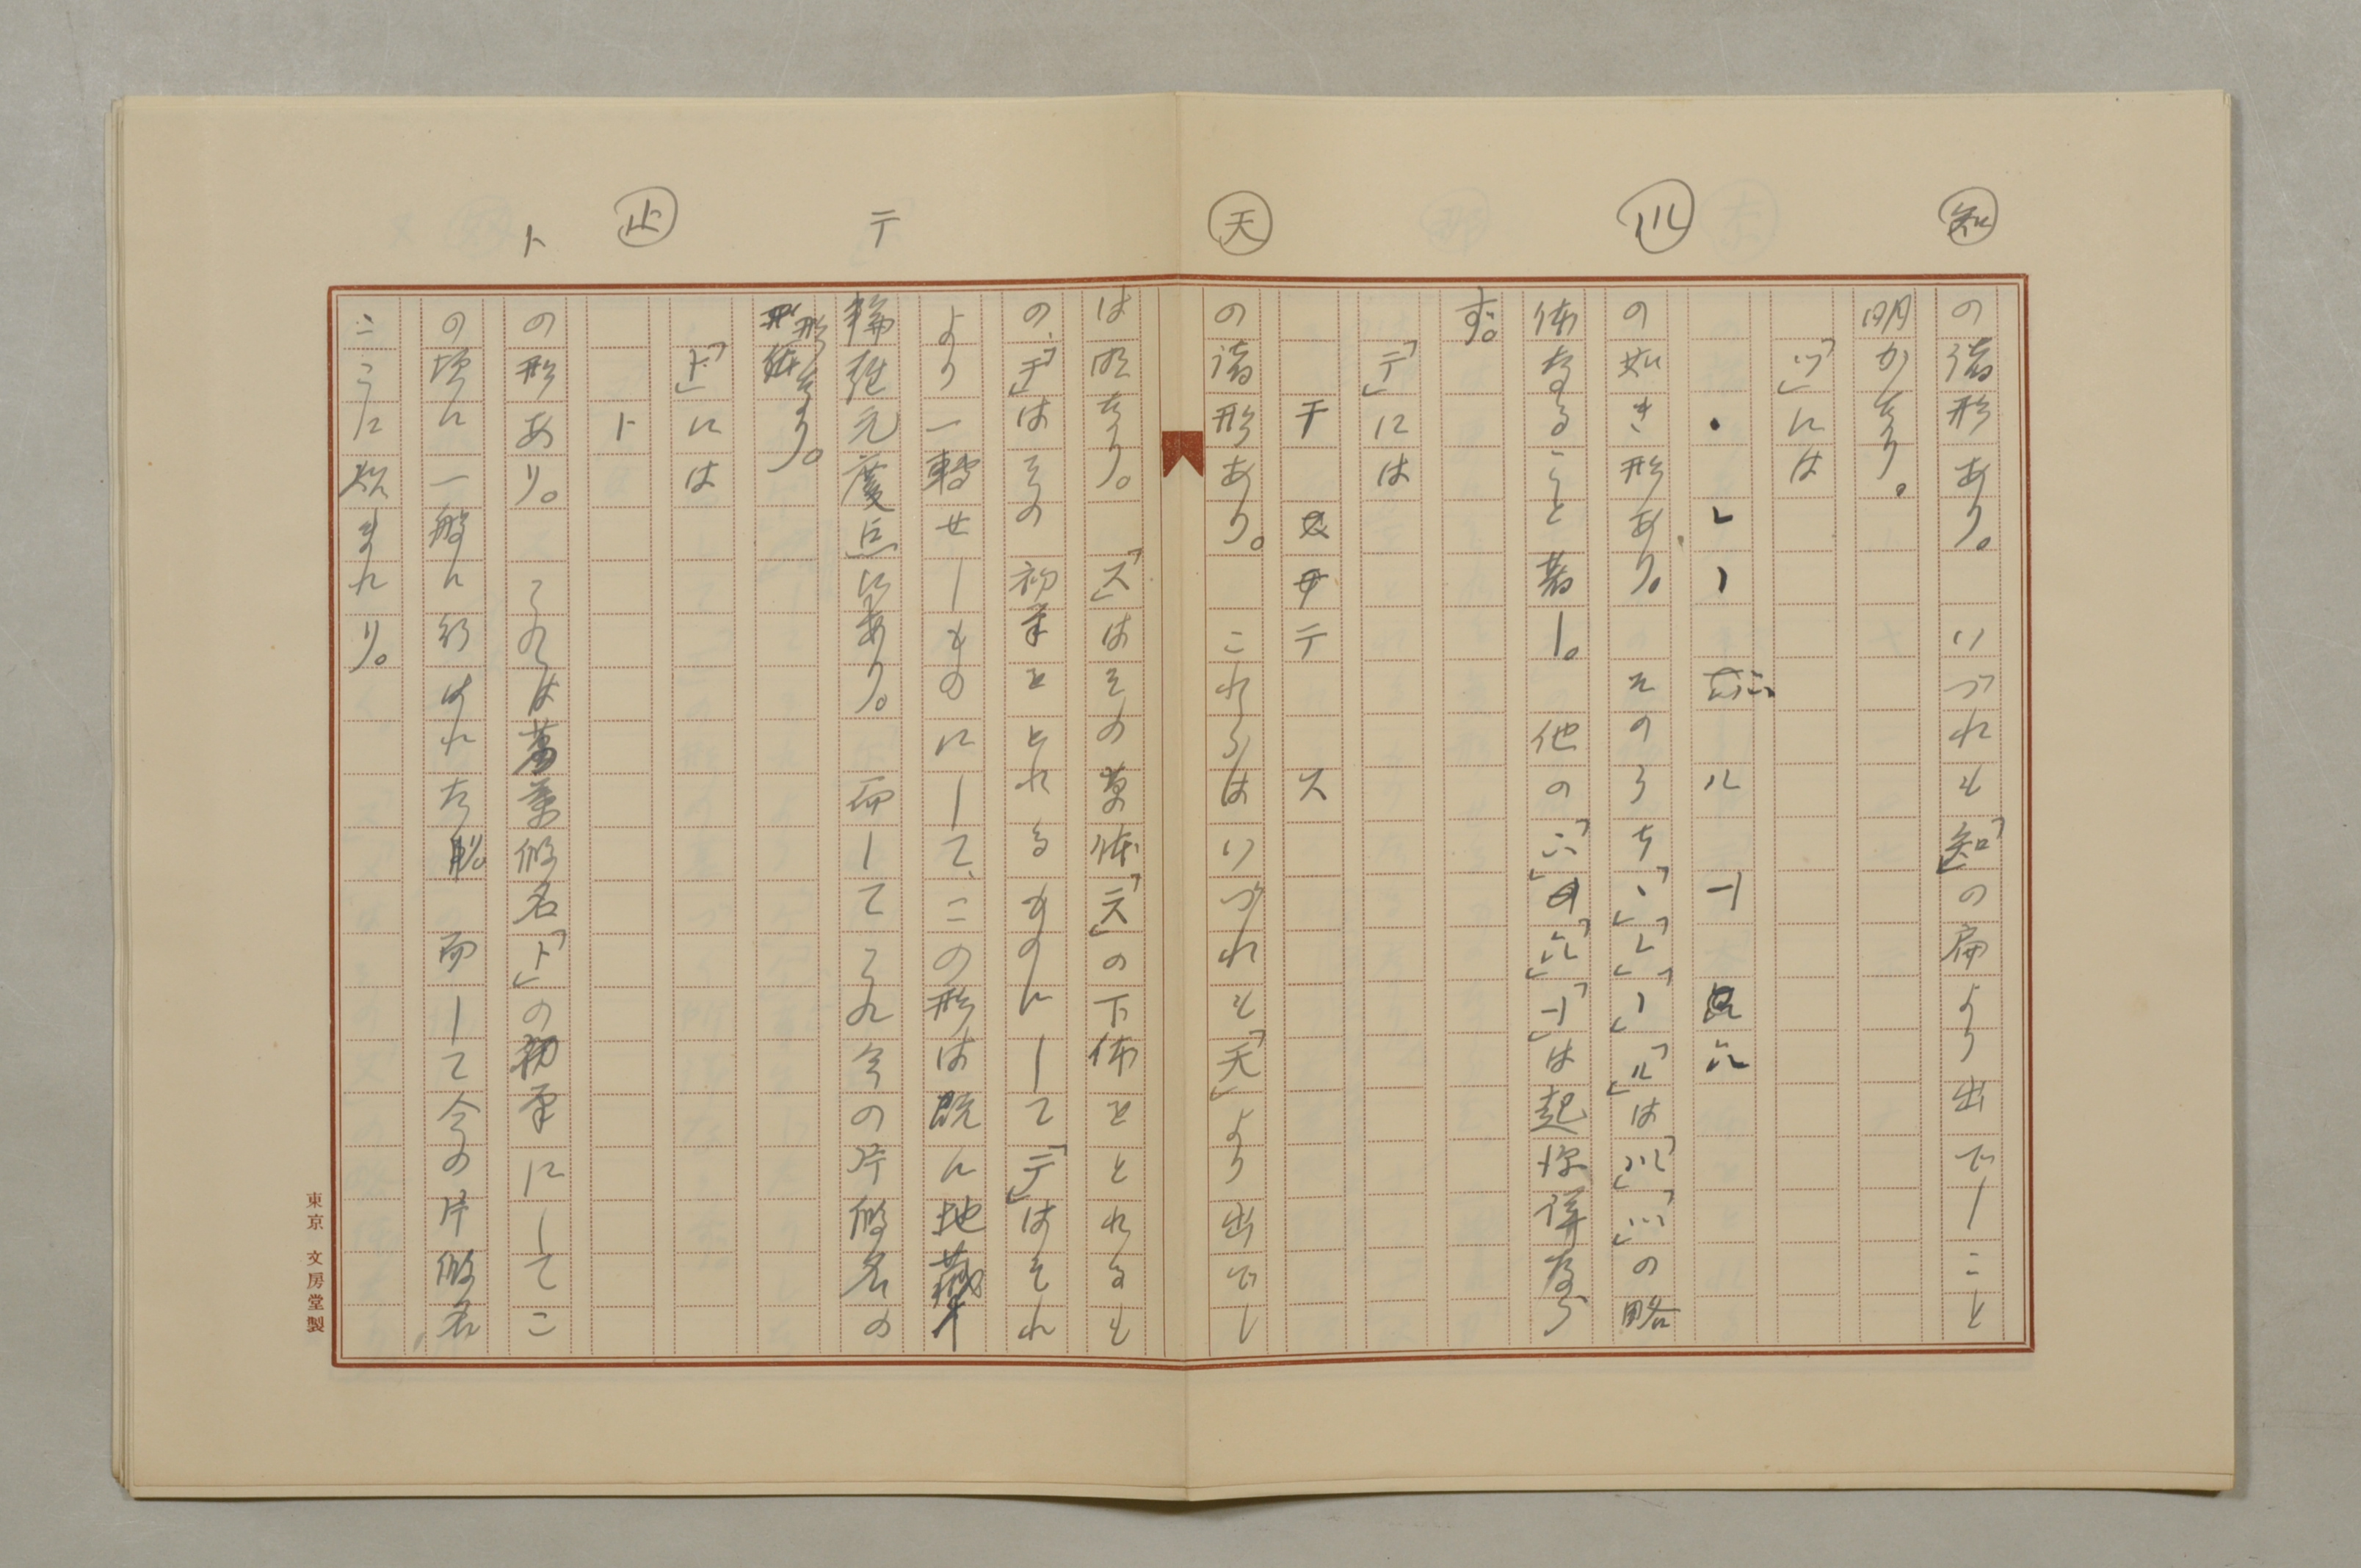 知
川
天
テ
止
ト
の諸形あり。いづれも「知」の扁より出でしこと
明かなり。
「ツ」には
ル
の如き形あり。そのうち「丶」「レ」「丨」「ル」は「川」「ツ」の略
体なること著し。他の は起源詳なら
ず。
「テ」には
チ テ ス
の諸形あり。これらはいづれも「天」より出でし
は明なり。「ス」はその草体「天」の下体をとれるも
の、「チ」はその初画をとれるものにして「テ」はそれ
より一轉せしものにして、この形は既に地蔵十
輪経元慶点にあり。而してこれ今の片假名の
形なり。
「ト」には
ト
の形あり。これは萬葉假名「ト」の初画にしてこ
の頃に一般に行はれた 而して今の片假名
こゝに始まれり。
東京 文房堂製